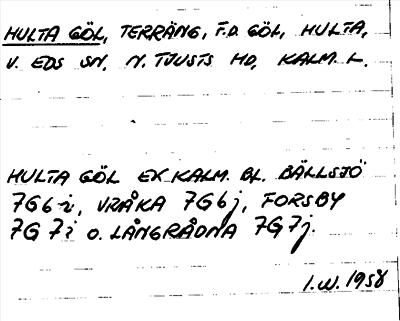 HULTA GÖL, TERRÄNG, F.D. GÖL, HULTA,
V. EDS SN, N. TJUSTS HD, KALM. L.
HULTA GÖL EK. KALM. BL. BÄLLSJÖ
7G6i, VRÅKA 7G6j, FORSBY
7G7i O. LÅNGRÅDNA 7G7j.
I.W. 1958